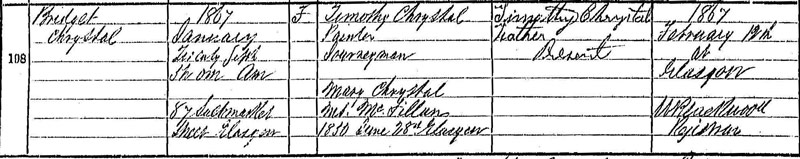 108
Bridget
Chrystal
1867
January
Twenty Sixth
5h 0m AM
87 Saltmarket
Street Glasgow
F
Timothy Chrystal
Painter
Journeyman
Mary Chrystal
M.S. McFillan
1850 June 28th Glasgow
Timothy Chrystal
Father
Present
1867
February 12th
at
Glasgow
W Blackwood
Registrar